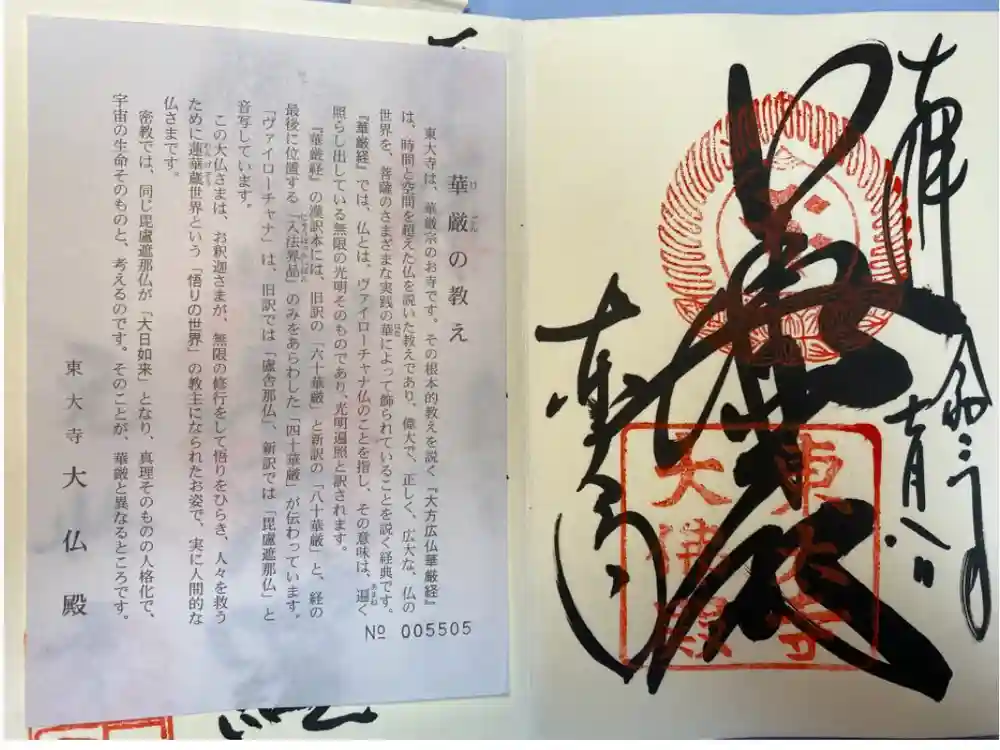 華厳の教え
東大寺は、華厳宗のお寺です。その根本的教えを説く『大方広仏華厳経』
は、時間と空間を超えた仏を説いた教えであり、偉大で、正しく、広大な、仏の
世界を、菩薩のさまざまな実践の華によって飾られていることを説く経典です。
『華厳経』では、仏とは、ヴァイローチャナ仏のことを指し、その意味は、遍く
照らし出している無限の光明そのものであり、光明遍照と訳されます。
『華厳経』の漢訳本には、旧訳の「六十華厳」と新訳の「八十華厳」と、経の
最後に位置する「入法界品」のみをあらわした「四十華厳」が伝わっています。
「ヴァイローチャナ」は、旧訳では「盧舎那仏」、新訳では「毘盧遮那仏」と
音写しています。
この大仏さまは、お釈迦さまが、無限の修行をして悟りをひらき、人々を救う
ために蓮華蔵世界という「悟りの世界」の教主になられたお姿で、実に人間的な
仏さまです。
密教では、同じ毘盧遮那仏が「大日如来」となり、真理そのものの人格化で、
宇宙の生命そのものと、考えるのです。そのことが、華厳と異なるところです。
東大寺 大仏殿
№ 005505
奉拝 令和二年
十一月八日
華厳
東大寺
東大寺
大佛殿